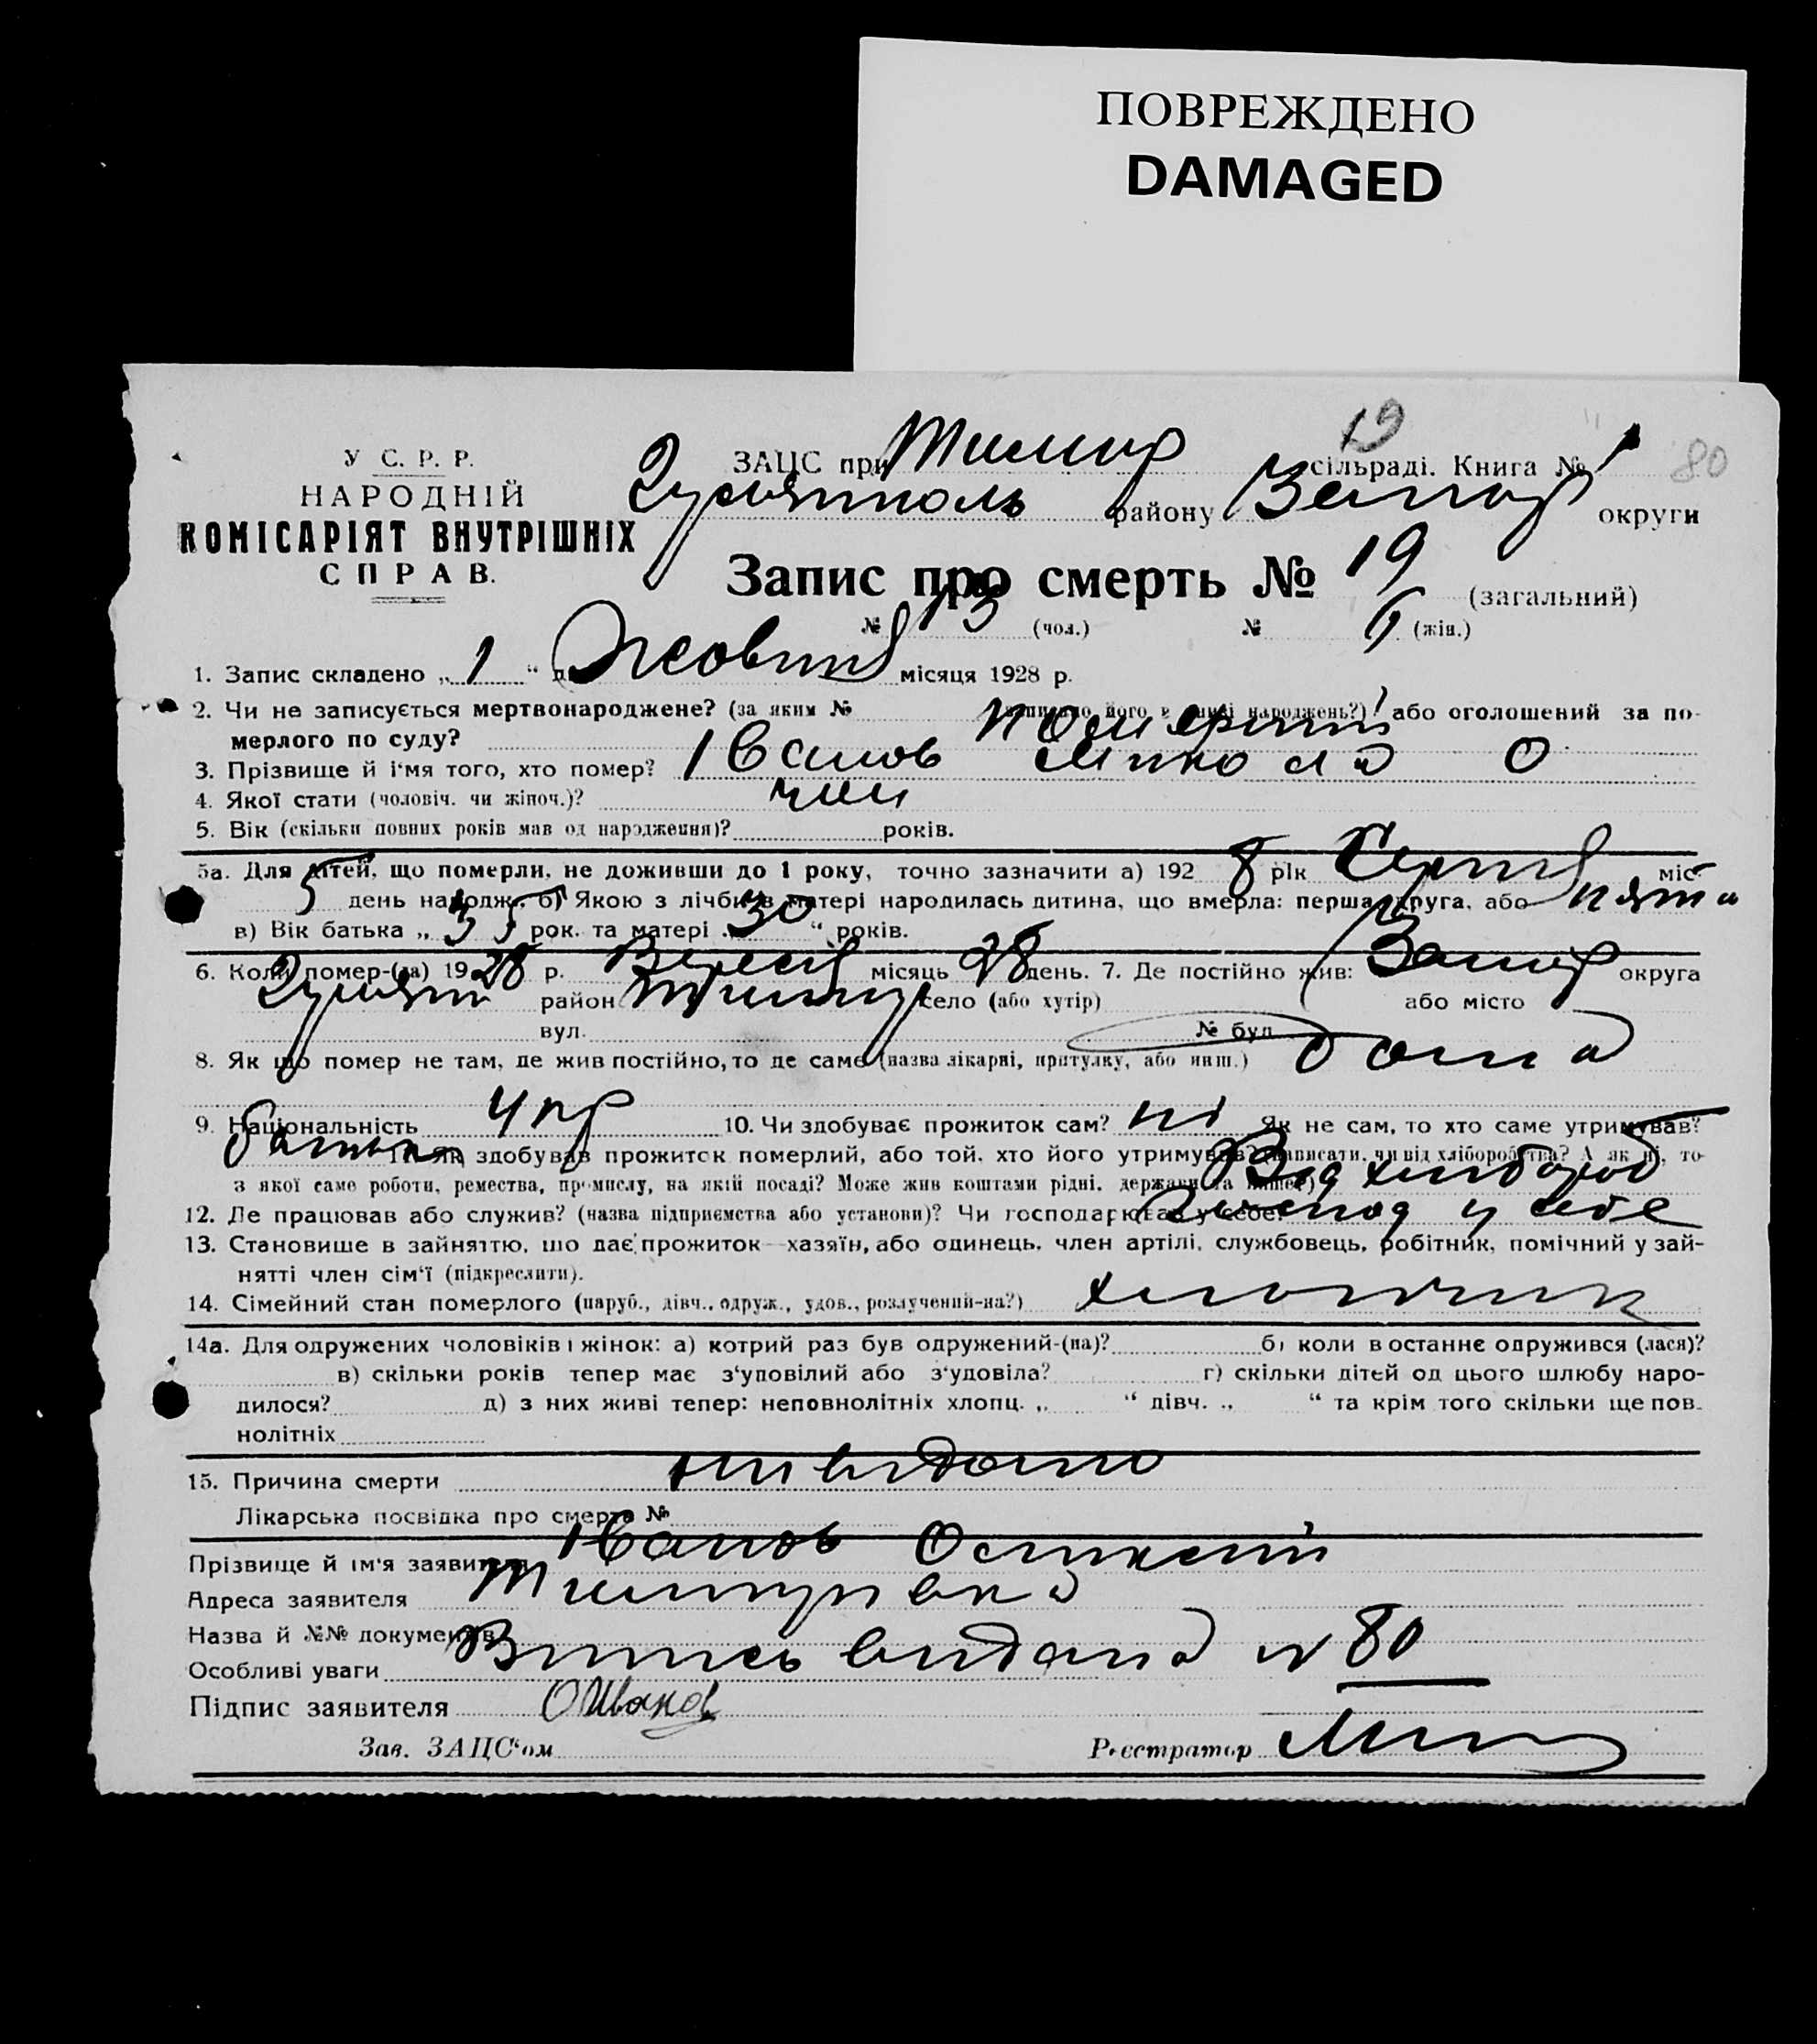 ПОВРЕЖДЕНО
DAMAGED
19
80
У С. Р. Р.
НАРОДНІЙ
КОМІСАРІЯТ ВНУТРІШНІХ
СПРАВ.
ЗАЦС при Тимир сільраді. Книга № 1
Гуляйполь району Запор округи
Запис про смерть № 19 (загальний)
№ 13 (чол.) № 6 (жін.)
1. Запис складено „ 1 “ Жовтня місяця 1928 р.
2. Чи не записується мертвонароджене? (за яким № записано його в книзі народжень?) або оголошений за по-
мерлого по суду? померший
3. Прізвище й ім'я того, хто помер? Іванов Микола О
4. Якої статі (чоловіч. чи жіноч.)? чол
5. Вік (скільки повних років мав од народження)? років.
5а. Для дітей, що померли, не доживши до 1 року, точно зазначити а) 192 8 рік Серпня міс.
5 день народж. б) Якою з лічби в матері народилась дитина, що вмерла: перша, друга, або пята
в) Вік батька „ 35 рок. та матері „ 30 “ років.
6. Коли помер-(ла) 1928 р. Вересня місяць 28 день. 7. Де постійно жив: Запор округа
Гуляйп район Тимир село (або хутір) або місто
вул. № буд.
8. Як що помер не там, де жив постійно, то де саме (назва лікарні, притулку, або инш.) дома
9. Національність Укр 10. Чи здобуває прожиток сам? ні Як не сам, то хто саме утримував?
батько 11. Як здобував прожиток померлий, або той, хто його утримував? (написати, чи від хліборобства? А як ні, то
з якої саме роботи, ремества, промислу, на якій посаді? Може жив коштами рідні, держави та инше) Від хлібороб
12. Де працював або служив? (назва підприємства або установи)? Чи господарював у себе? Господ у себе
13. Становище в зайняттю, що дає прожиток—хазяїн, або одинець, член артілі, службовець, робітник, помічний у зай-
нятті член сім'ї (підкреслити).
14. Сімейний стан померлого (паруб., дівч., одруж., удов., розлучений-на?) хлопчик
14а. Для одружених чоловіків і жінок: а) котрий раз був одружений-(на)? б) коли в останнє одружився (лася)?
в) скільки років тепер має з'уповілий або з'удовіла? г) скільки дітей од цього шлюбу наро-
дилося? д) з них живі тепер: неповнолітніх хлопц. „ “ дівч. „ “ та крім того скільки ще пов-
нолітніх
15. Причина смерти невідомо
Лікарська посвідка про смерть №
Прізвище й ім'я заявителя Іванов
Адреса заявителя Тимирівка
Назва й №№ документів
Особливі уваги Випись видана № 80
Підпис заявителя О Иванов
Зав. ЗАЦС'ом Реєстратор